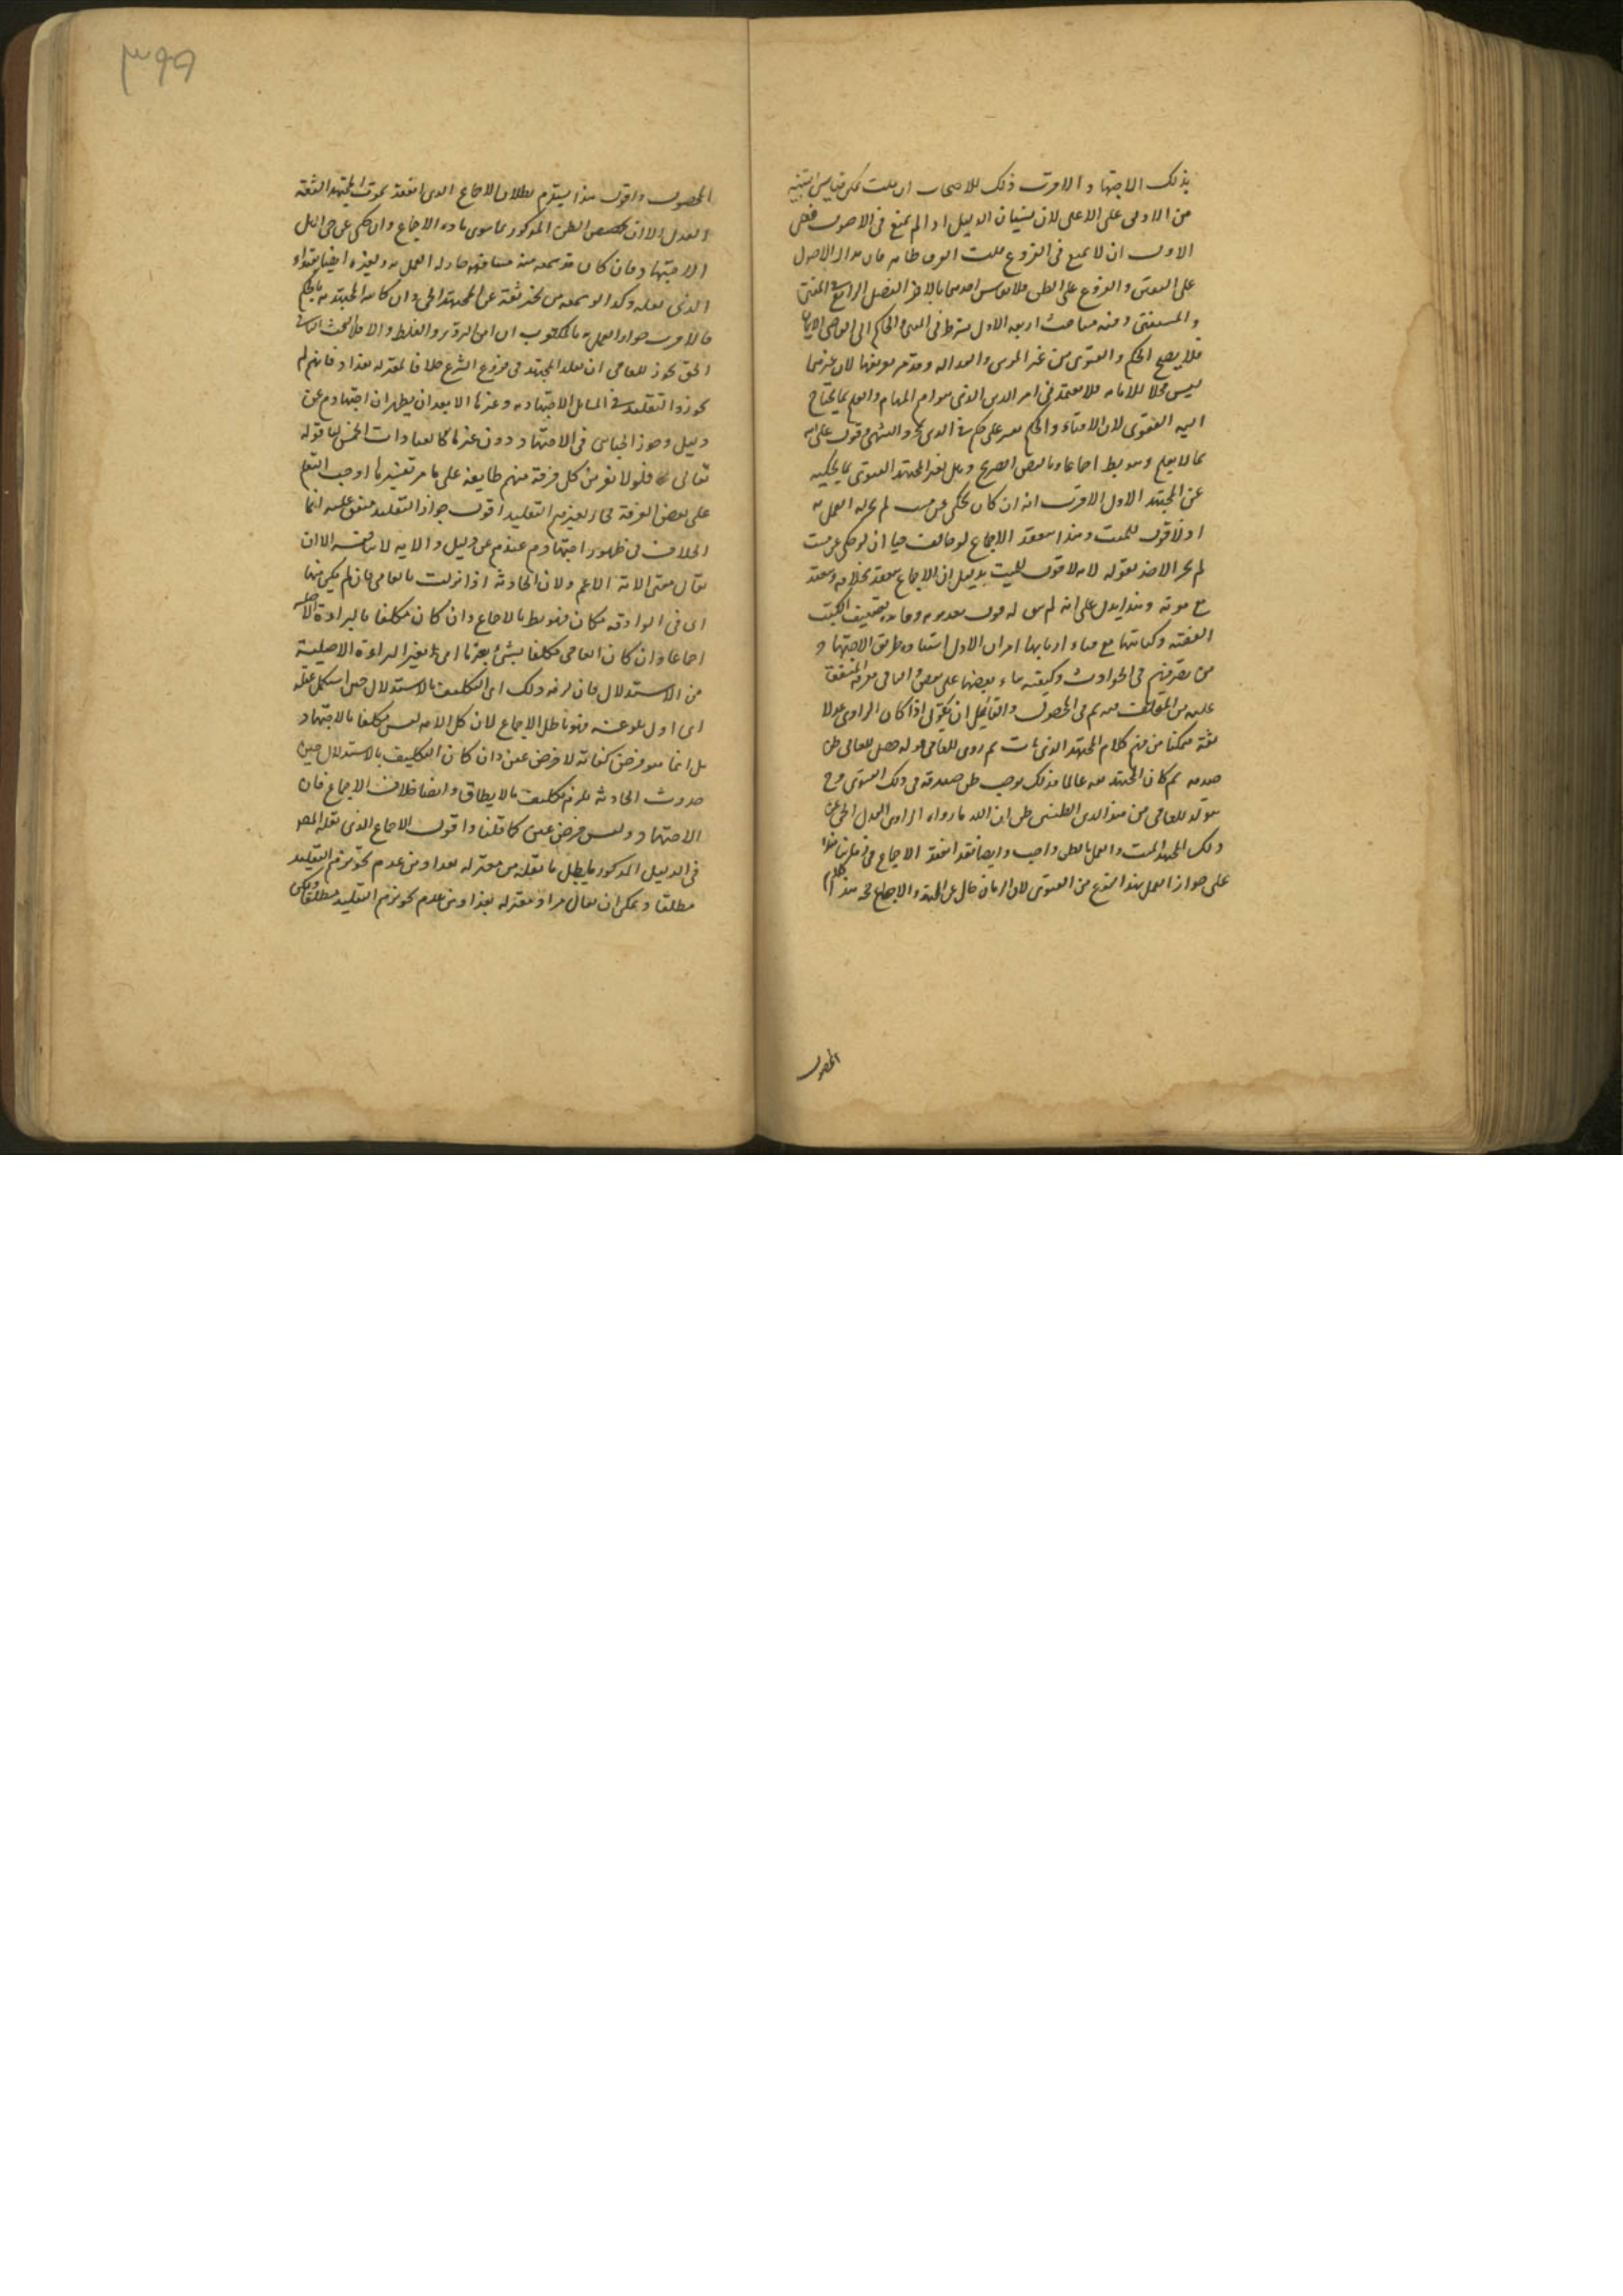 بذلك الاجتهاد والاقرب ذلك للاصحاب ان قلت يمكن قياس التنبيه
من الادنى على الاعلى لان نسيان الدليل اذا لم يمنع فى الاصول فعلى
الاولى ان لا يمنع فى الفروع قلت الفرق ظاهر فان مدار الاصول
على اليقين والفروع على الظن فلا يقاس احدهما بالاخر الفصل الرابع فى المفتى
والمستفتى وفيه مباحث اربعة الاول يشترط فى المفتى والحاكم اى القاضى الايمان
فلا يصح الحكم والفتوى من غير المؤمن والعدالة وقد مر تعريفها لان غيرهما
ليس محلا للامانة فلا يعتمد فى امر الدين الذى هو اهم المهام والعلم بما يحتاج
اليه الفتوى لان الافتاء والحكم بغير علم حكم فى الدين بمجرد التشهى وقول على الله
بما لا يعلم وهو باطل اجماعا وبالنص الصريح وهل لغير المجتهد الفتوى بما يحكيه
عن المجتهد الاول الاقرب انه ان كان يحكى عن ميت لم يجز له العمل به
اذ لا قول للميت ولهذا ينعقد الاجماع لو خالف حيا ان لو حكى عن ميت
لم يجز الاخذ بقوله لانه لا قول للميت بدليل ان الاجماع ينعقد بخلافه وينعقد
مع موته وهذا يدل على انه لم يبق له قول بعد موته وفائدة تصنيف الكتب
الفقهية وكتابتها مع فناء اربابها امران الاول استفادة طريق الاجتهاد
من تصرفهم فى الحوادث وكيفية بناء بعضها على بعض والثانى معرفة المتفق
عليه من المختلف فيه ثم فى المحصول ولقائل ان يقول اذا كان الراوى عدلا
ثقة متمكنا من فهم كلام المجتهد الذى مات ثم روى للعامى قوله حصل للعامى ظن
صدقه ثم كان المجتهد ثقة عالما فذلك يوجب ظن صدقه فى ذلك الفتوى وح
يتولد للعامى من هذين الظنين ظن ان حكم الله ما رواه الراوى العدل الحى عن
ذلك المجتهد الميت والعمل بالظن واجب وايضا فقد انعقد الاجماع فى زماننا هذا
على جواز العمل بهذا النوع من الفتوى لان الزمان خال عن المجتهد والاجماع حجة هذا كلام
المحصول
٣٩٩
المحصول واقول هذا يستلزم بطلان الاجماع الذى انعقد بموت المجتهد الثقة
العدل الا ان يخصص الظن المذكور بما سوى مادة الاجماع وان حكى عن حى اهل
الاجتهاد فان كان قد سمعه منه مشافهة جاز له العمل به ولغيره ايضا بقوله
الذى نقله وكذا لو سمعه من مخبر ثقة عن المجتهد الحى وان كان المجتهد به بالحكم
فالاقرب جواز العمل به بالمكتوب ان امن التزوير والغلط والا فلا البحث الثانى
الحق يجوز للعامى ان يقلد المجتهد فى فروع الشرع خلافا لمعتزلة بغداد فانهم لم
يجوزوا التقليد فى المسائل الاجتهادية وغيرها الا بعد ان يظهر ان اجتهادهم عن
دليل وجوز الجبائى فى الاجتهاد دون غيرها كالعبادات الخمس لنا قوله
تعالى فلولا نفر من كل فرقة منهم طايفة على ما مر تفسيرها اوجب التعلم
على بعض الفرقة فجاز لغيرهم التقليد اقول جواز التقليد متفق عليه انما
الخلاف فى ظهور اجتهادهم عندهم عن دليل والاية لا تنافيه الا ان
يقال معنى الاية الاعم ولان الحادثة اذا نزلت بالعامى فان لم يكن مكلفا
اى فى الواقعة فكان فهو باطل بالاجماع وان كان مكلفا بالبراءة الاصلية
اجماعا وان كان العامى مكلفا بشئ بغيرها اى بغير البراءة الاصلية
من الاستدلال فان لزمه ذلك اى التكليف بالاستدلال حين استكمل عقله
اى اول بلوغه فهو باطل الاجماع لان كل الامة ليس مكلفا بالاجتهاد
بل انما هو فرض كفاية لا فرض عين وان كان التكليف بالاستدلال حين
حدوث الحادثة يلزم تكليف ما لا يطاق وايضا خلاف الاجماع فان
الاجتهاد وليس فرض عين كما قلنا واقول الاجماع الذى نقله المصر
فى الدليل المذكور يبطل ما نقله من معتزلة بغداد من عدم تجويزهم التقليد
مطلقا ويمكن ان يقال مراد معتزلة بغداد من عدم تجويزهم التقليد مطلقا